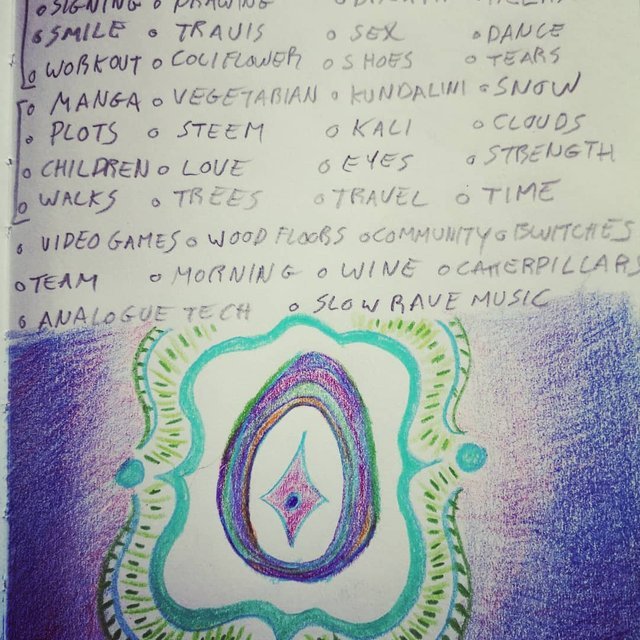 o SIGNING o DRAWING
o SMILE o TRAVIS o SEX o DANCE
o WORKOUT o COLIFLOWER o SHOES o TEARS
o MANGA o VEGETARIAN o KUNDALINI o SNOW
o PLOTS o STEEM o KALI o CLOUDS
o CHILDREN o LOVE o EYES o STRENGTH
o WALKS o TREES o TRAVEL o TIME
o VIDEO GAMES o WOOD FLOORS o COMMUNITY o BWITCHES
o TEAM o MORNING o WINE o CATERPILLARS
o ANALOGUE TECH o SLOW RAVE MUSIC